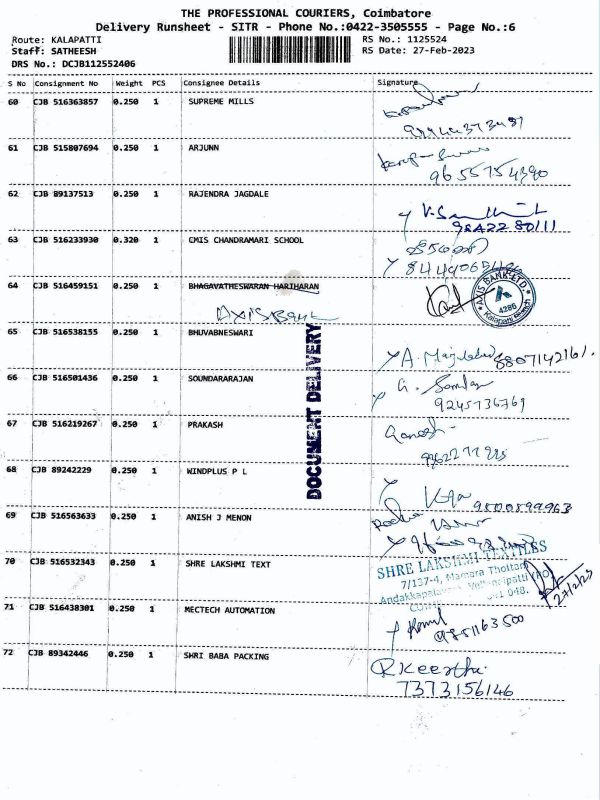 THE PROFESSIONAL COURIERS, Coimbatore
Delivery Runsheet - SITR - Phone No.:0422-3505555 - Page No.:6
Route: KALAPATTI RS No.: 1125524
Staff: SATHEESH RS Date: 27-Feb-2023
DRS No.: DCJB112552406
S No Consignment No Weight PCS Consignee Details Signature
60 CJB 516363857 0.250 1 SUPREME MILLS
61 CJB 515807694 0.250 1 ARJUNN
9655754390
62 CJB 89137513 0.250 1 RAJENDRA JAGDALE
63 CJB 516233930 0.320 1 CMIS CHANDRAMARI SCHOOL
64 CJB 516459151 0.250 1 BHAGAVATHESWARAN HARIHARAN
AXIS Bank
AXIS BANK LTD.
4286
Kalapatti Branch
65 CJB 516538155 0.250 1 BHUVABNESWARI
8807142161.
66 CJB 516501436 0.250 1 SOUNDARARAJAN
9245736769
67 CJB 516219267 0.250 1 PRAKASH
Ganesh
DOCUMENT DELIVERY
68 CJB 89242229 0.250 1 WINDPLUS P L
9500899963
69 CJB 516563633 0.250 1 ANISH J MENON
70 CJB 516532343 0.250 1 SHRE LAKSHMI TEXT
SHRE LAKSHMI TEXTILES
7/137-4, Mamara Thottam
27/2/23
71 CJB 516438301 0.250 1 MECTECH AUTOMATION
72 CJB 89342446 0.250 1 SHRI BABA PACKING
R Keertha.
7373156146